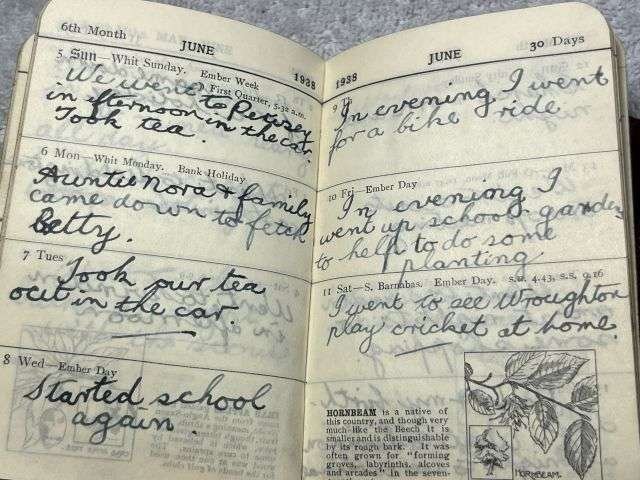 6th Month
JUNE
1938
5 Sun—Whit Sunday. Ember Week
First Quarter, 5.32 a.m.
We went to Pewsey
in afternoon in the car.
Took tea.
6 Mon—Whit Monday. Bank Holiday
Auntie Nora & family
came down to fetch
Betty.
7 Tues
Took our tea
out in the car.
8 Wed—Ember Day
Started school
again.
1938
JUNE
30 Days
9 Th
In evening I went
for a bike ride
10 Fri—Ember Day
In evening I
went up school garden
to help to do some
planting
11 Sat—S. Barnabas. Ember Day. s.r. 4.43, s.s. 9.16
I went to see Wroughton
play cricket at home.
HORNBEAM is a native of
this country, and though very
much like the Beech it is
smaller and is distinguishable
by its rough bark. It was
often grown for "forming
groves, labyrinths, alcoves
and arcades" in the seven-
HORNBEAM.